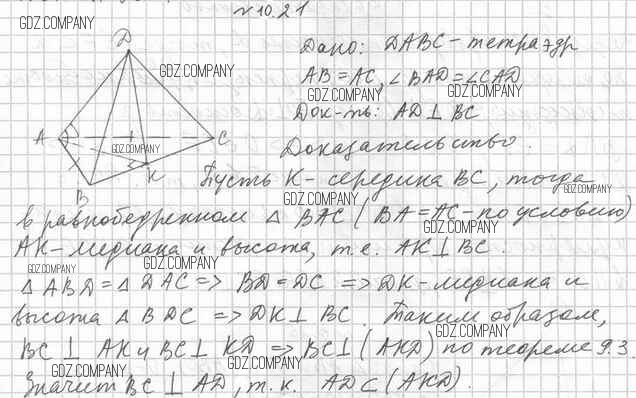 №10.21
GDZ.COMPANY
D
Дано: DABC - тетраэдр
GDZ.COMPANY
AB = AC, ∠BAD = ∠CAD
GDZ.COMPANY GDZ.COMPANY
Док-ть: AD ⊥ BC
A C
GDZ.COMPANY
Доказательство.
B K
Пусть K - середина BC, тогда
GDZ.COMPANY GDZ.COMPANY
в равнобедренном △ BAC (BA = AC - по условию)
GDZ.COMPANY
AK - медиана и высота, т.е. AK ⊥ BC.
GDZ.COMPANY GDZ.COMPANY
△ ABD = △ DAC => BD = DC => DK - медиана и
GDZ.COMPANY
высота △ BDC => DK ⊥ BC. Таким образом,
GDZ.COMPANY
BC ⊥ AK и BC ⊥ KD => BC ⊥ (AKD) по теореме 9.3.
GDZ.COMPANY GDZ.COMPANY
Значит BC ⊥ AD, т.к. AD ⊂ (AKD).
GDZ.COMPANY GDZ.COMPANY